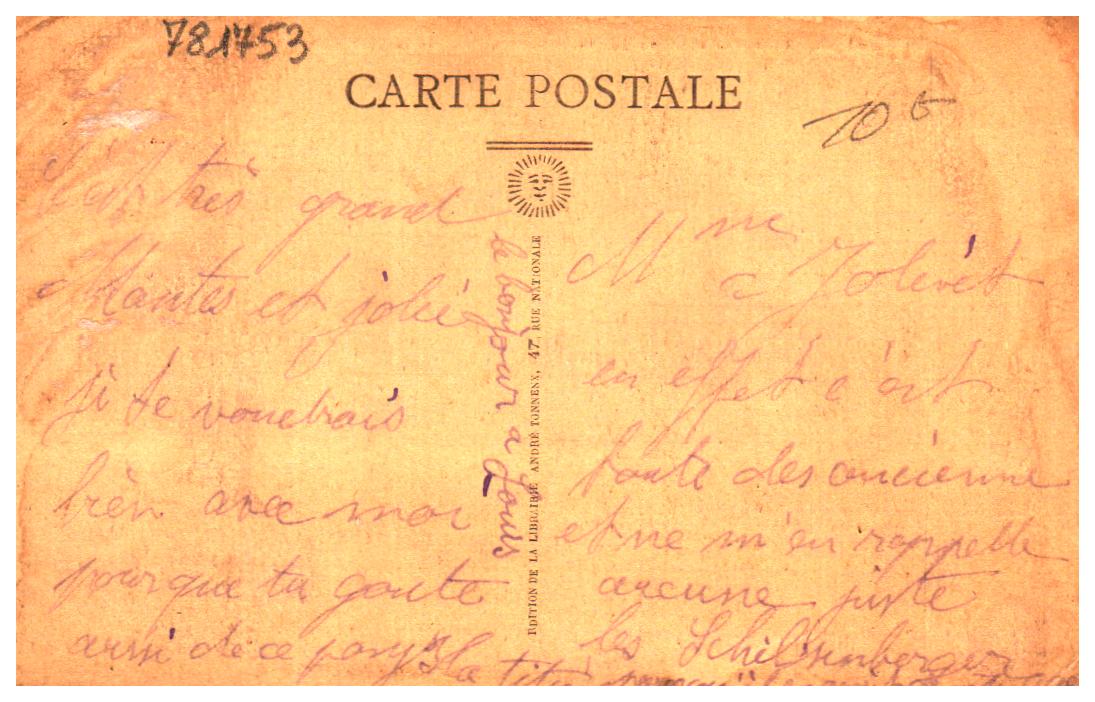 781753
CARTE POSTALE
10
C'est très grand
Mantes et jolie
je te voudrais
bien avec moi
pourque tu goute
aussi de ce pays
le bonjour a Louis
EDITION DE LA LIBRAIRIE ANDRÉ TONNENX, 47, RUE NATIONALE
Mme
en effet c'est
toute des ancienne
et ne m'en rappelle
aucune juste
les